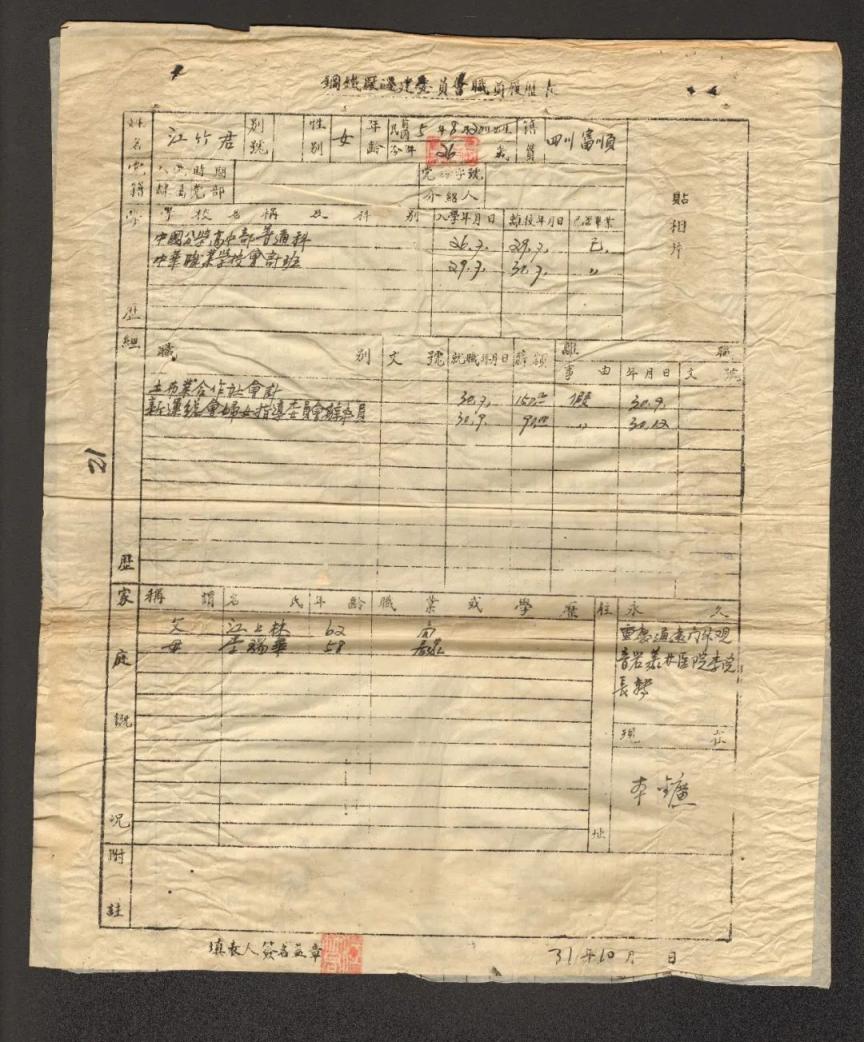 鋼鐵廠遷建委員會職員履歷表
姓名 江竹君 別號 性別 女 年齡 民國5年8月20日出生 今年26歲 籍貫 四川富順
黨籍 入黨時期 黨証字號
隸屬党部 介紹人
貼相片
學歷 學校名稱及科別 入學年月日 離校年月日 已否畢業
中國公學高中部普通科 26.7. 29.7. 已.
中華職業學校會計班 29.7. 30.7. 〃
經歷 職別 文號 就職年月日 薪額 離職
事由 年月日 文號
土布業合作社會計 30.7. 150.00 假 30.9.
新運總會婦女指導委員會辦事員 30.9. 90.00 〃 30.12
家庭概況 稱謂 名氏 年齡 職業或學歷 住址 永久
父 江上林 62 商
母 李瑞華 58
重慶通遠門外观
音岩義林医院李院
長轉
現在
本廠
附註
填表人簽名蓋章
31年10月 日
21